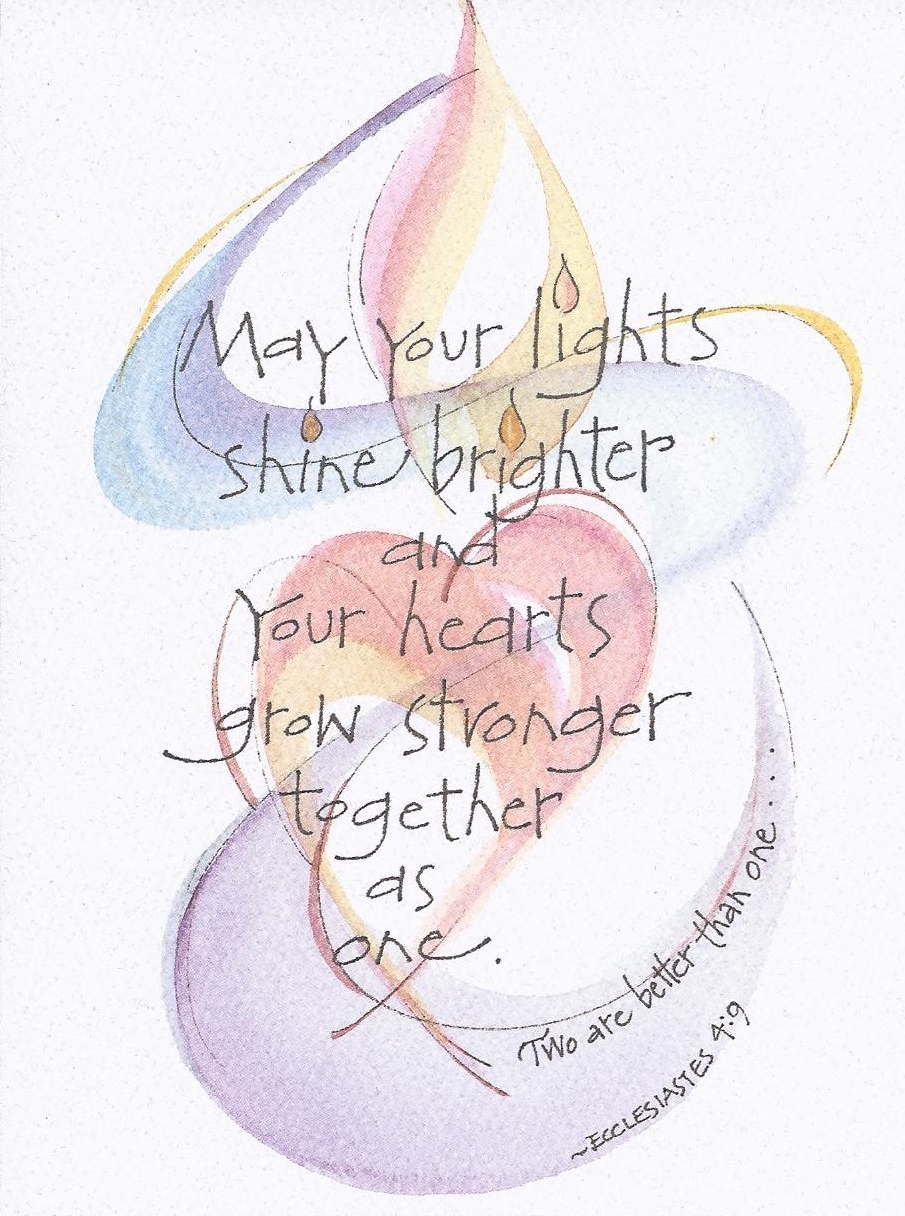 May your lights
shine brighter
and
Your hearts
grow stronger
together
as
one.
Two are better than one...
~ECCLESIASTES 4:9